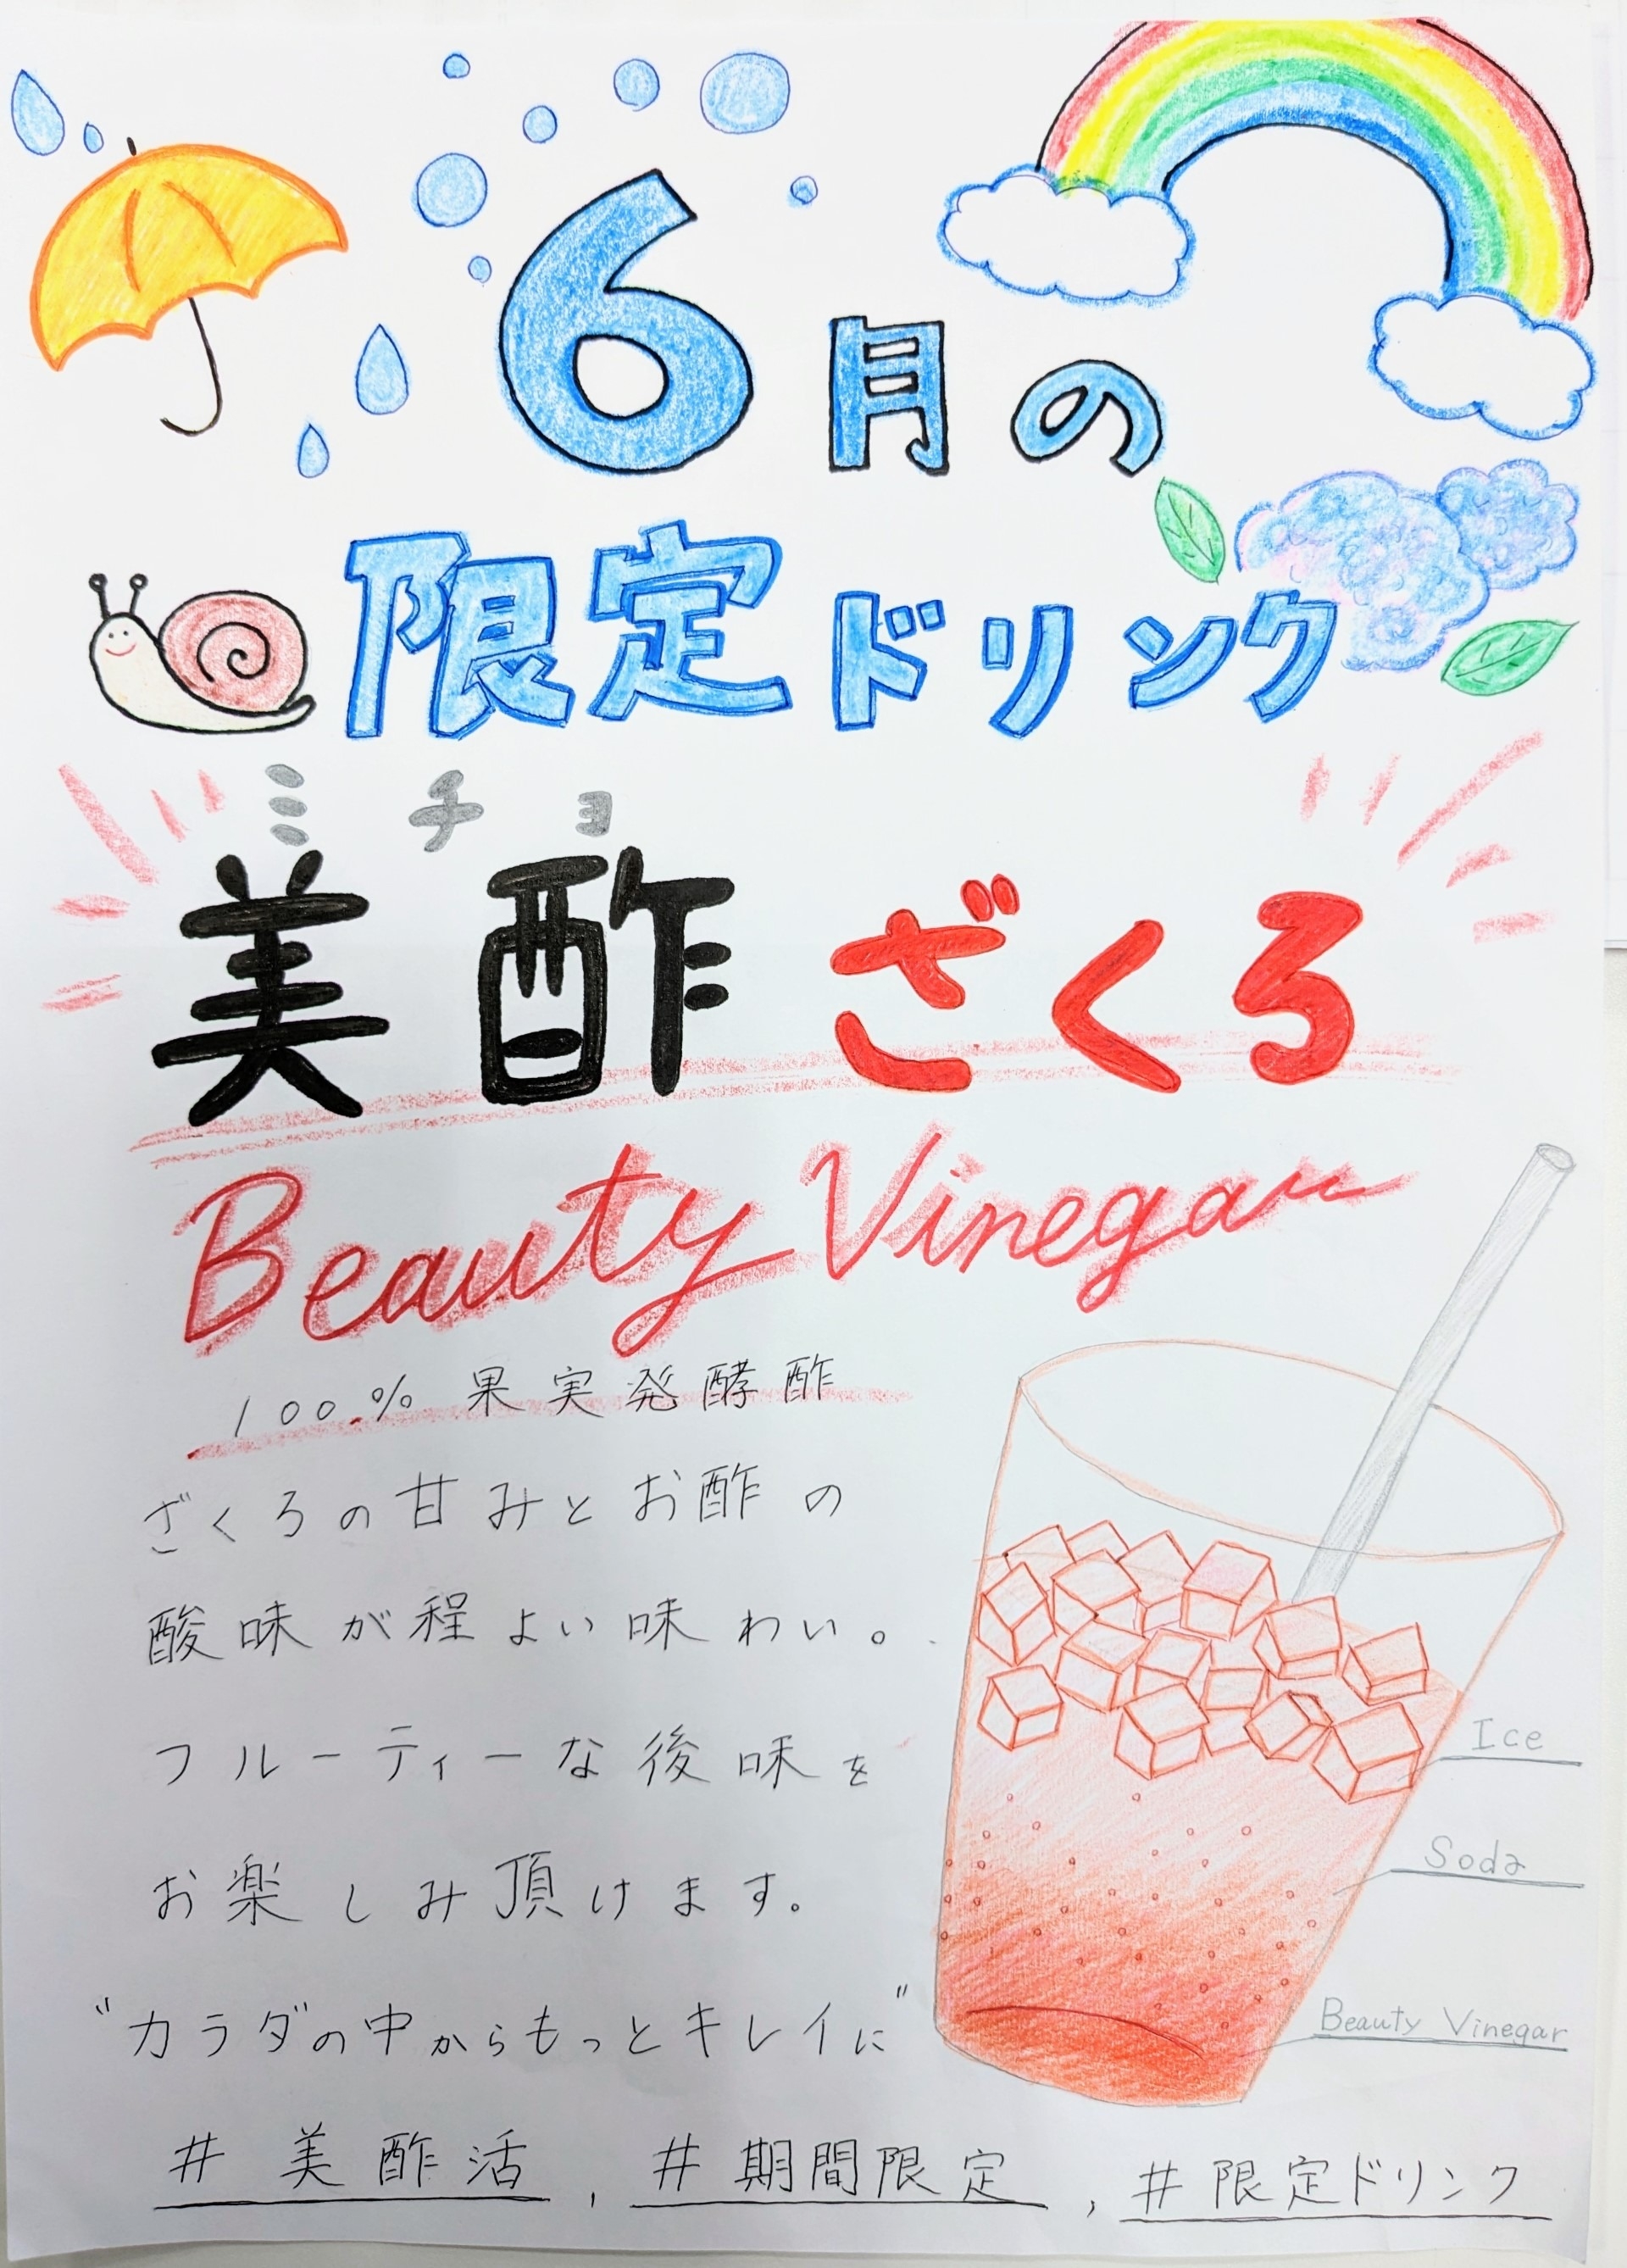 6月の
限定ドリンク
ミチョ
美酢ざくろ
Beauty Vinegar
100%果実発酵酢
ざくろの甘みとお酢の
酸味が程よい味わい。
フルーティーな後味を
お楽しみ頂けます。
"カラダの中からもっとキレイに"
Ice
Soda
Beauty Vinegar
#美酢活,#期間限定,#限定ドリンク